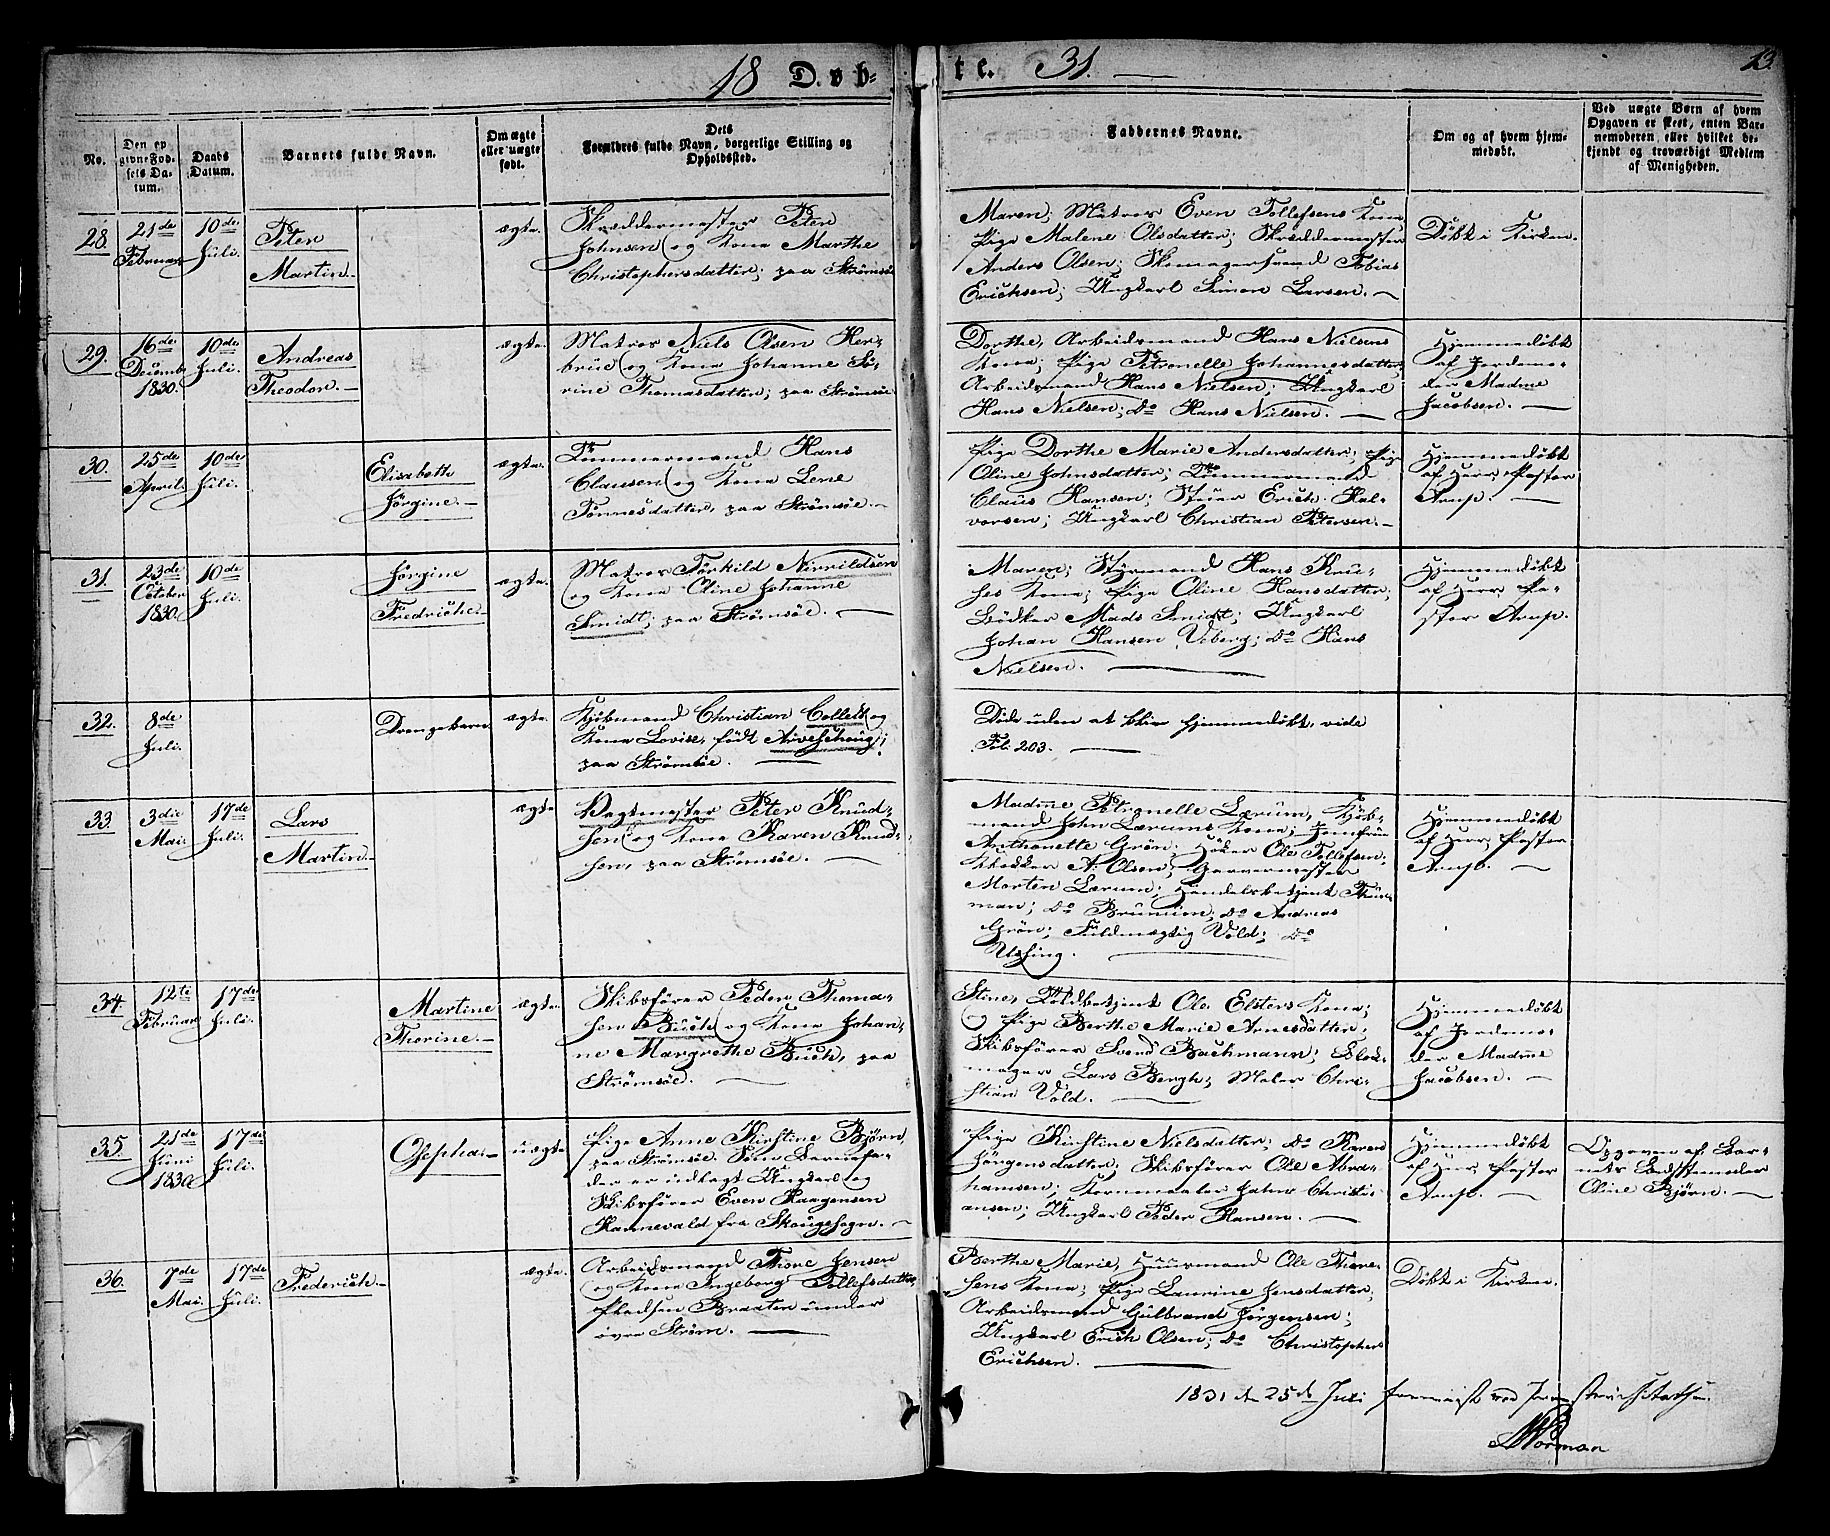 18 Døb-
te. 31.
13.
No.
Den op
givne Fød-
sels Da-
tum.
Daabs
Datum.
Barnets fulde Navn.
Om ægte
eller uægte
født.
Dets
Forældres fulde Navn, borgerlige Stilling og
Opholdssted.
Faddernes Navne.
Om og af hvem hjem-
medøbt.
Ved uægte Børn af hvem
Opgaven er skeet, enten Bar-
nemoderen eller hvilket be-
kjendt og troværdigt Medlem
af Menigheden.
28.
21de
Februar
10de
Juli.
Peter
Martin.
ægte.
Skræddermester Peter
Johnsen og Kone Marthe
Christophersdatter; paa Strømsöe
Maren; Matros Even Tollefsens Kone,
Pige Malene Olsdatter; Skræddermester
Anders Olsen; Skomagersvend Tobias
Erichsen; Ungkarl Simon Larsen.
Döbt i Kirken.
29.
16de
Decemb.
1830.
10de
Juli.
Andreas
Theodor.
ægte.
Matros Niels Olsen Her-
brue og Kone Johanne Sö-
rine Thomasdatter; paa Strömsöe.
Dorthe, Arbeidsmand Hans Nielsens
Kone; Pige Petronelle Johannesdatter;
Arbeidsmand Hans Nielsen; Ungkarl
Hans Nielsen; do Hans Nielsen.
Hjemmedöbt
af Jordemo-
der Madme
Jacobsen.
30.
25de
April.
10de
Juli.
Elisabeth
Jörgine.
ægte.
Tömmermand Hans
Clausen og Kone Lene
Tönnesdatter, paa Strömsöe.
Pige Dorthe Marie Andersdatter; Pige
Oline Johnsdatter; Tömmermand
Claus Hansen; Stuer Erich Hal-
vorsen; Ungkarl Christian Petersen.
Hjemmedöbt
af Herr Pastor
Arup.
31.
23de
October
1830.
10de
Juli.
Jörgine
Fredricke.
ægte.
Matros Törkild Nirrildsen
og Kone Oline Johanne
Smidt; paa Strömsöe.
Maren; Styrmand Hans Kru-
ses Kone; Pige Oline Hansdatter;
Bödker Mads Smidt; Ungkarl
Johan Hansen Viberg; do Hans
Nielsen.
Hjemmedöbt
af Herr Pa-
stor Arup.
32.
8de
Juli.
Drengebarn
ægte.
Kjöbmand Christian Collett og
Kone Lovise, födt Arveschoug;
paa Strömsöe.
Döde uden at blive hjemmedöbt, vide
Fol: 203.
33.
3die
Mai.
17de
Juli.
Lars
Martin.
ægte
Vægtmester Peter Knud-
sen og Kone Karen Knud-
sen, paa Strömsöe.
Madme Petronelle Lærum, Kjöb-
mand John Lærums Kone; Jomfrue
Anthonette Grön; Höker Ole Tollefsen;
Klokker A. Olsen; Garvermester
Morten Lærum; Handelsbetjent Thur-
man; do Brunien; do Andreas
Grön; Fuldmægtig Vold; do
Ussing.
Hjemmedöbt
af Herr Pastor
Arup.
34.
12te
Februar
17de
Juli.
Martine
Thorine.
ægte.
Skibsförer Peder Thoma-
sen Buch og Kone Johan-
ne Margrethe Buch, paa
Strömsöe.
Stine, Toldbetjent Ole Elsters Kone;
og Pige Berthe Marie Arnesdatter;
Skibsförer Svend Bachmann; Blok-
mager Lars Bergh; Maler Chri-
stian Vold.
Hjemmedöbt
af Jordemo-
der Madme
Jacobsen.
35.
21de
Juni
1830.
17de
Juli.
Osepha.
uægte
Pige Anne Kirstine Björn,
paa Strömsöe. Som Barnefa-
der er indlagt Ungkarl og
Skibsförer Even Haagensen
Hannevald fra Skougesogn.
Pige Kirstine Nielsdatter; do Karen
Jörgensdatter; Skibsförer Ole Abra-
hamsen; Kornmaaler John Christi-
ansen; Ungkarl Peder Hansen.
Hjemmedöbt
af Herr Pastor
Arup.
Opgaven af Bar-
nets Bedstemoder
Oline Björn.
36.
7de
Mai.
17de
Juli.
Frederich.
ægte.
Arbeidsmand Thore Jensen
og Kone Ingeborg Tollefsdatter
Pladsen Braaten under
övre Ström.
Berthe Marie, Huusmand Ole Thore-
sens Kone; Pige Laurine Jensdatter;
Arbeidsmand Gulbrand Jörgensen;
Ungkarl Erich Olsen; do Christopher
Erichsen.
Döbt i Kirken.
1831 den 25de Juli
Worman